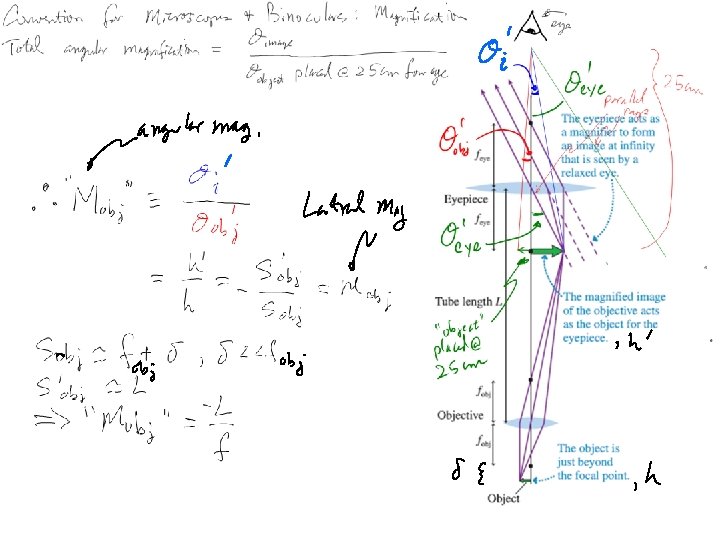 Convention for Microscopes & Binoculars: Magnification
Total angular magnification = θimage
θobject placed @ 25cm from eye
angular mag.
∴ "Mobj" ≡ θi'
θobj'
Lateral mag
= h'/h = - s'obj/sobj = mobj
sobj ≃ fobj + δ , δ << fobj
s'obj ≃ L
=> "Mobj" = -L/f
eye
θi'
θ'eye
25cm
parallel rays
The eyepiece acts as
a magnifier to form
an image at infinity
that is seen by a
relaxed eye.
θ'obj
feye
Eyepiece
feye
θ'eye
Tube length L
The magnified image
of the objective acts
as the object for the
eyepiece.
, h'
"object"
placed @
25cm
fobj
Objective
fobj
δ {
The object is
just beyond
the focal point.
, h
Object